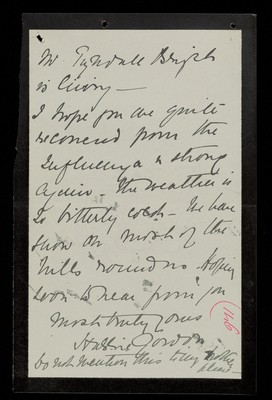 Mr Tyndale Bright
is living —
I hope you are quite
recovered from the
Influenza & strong
again – The weather is
so bitterly cold – We have
snow on most of the
hills round us. Hoping
soon to hear from you
Most truly yours
Gordon
Do not mention this to my